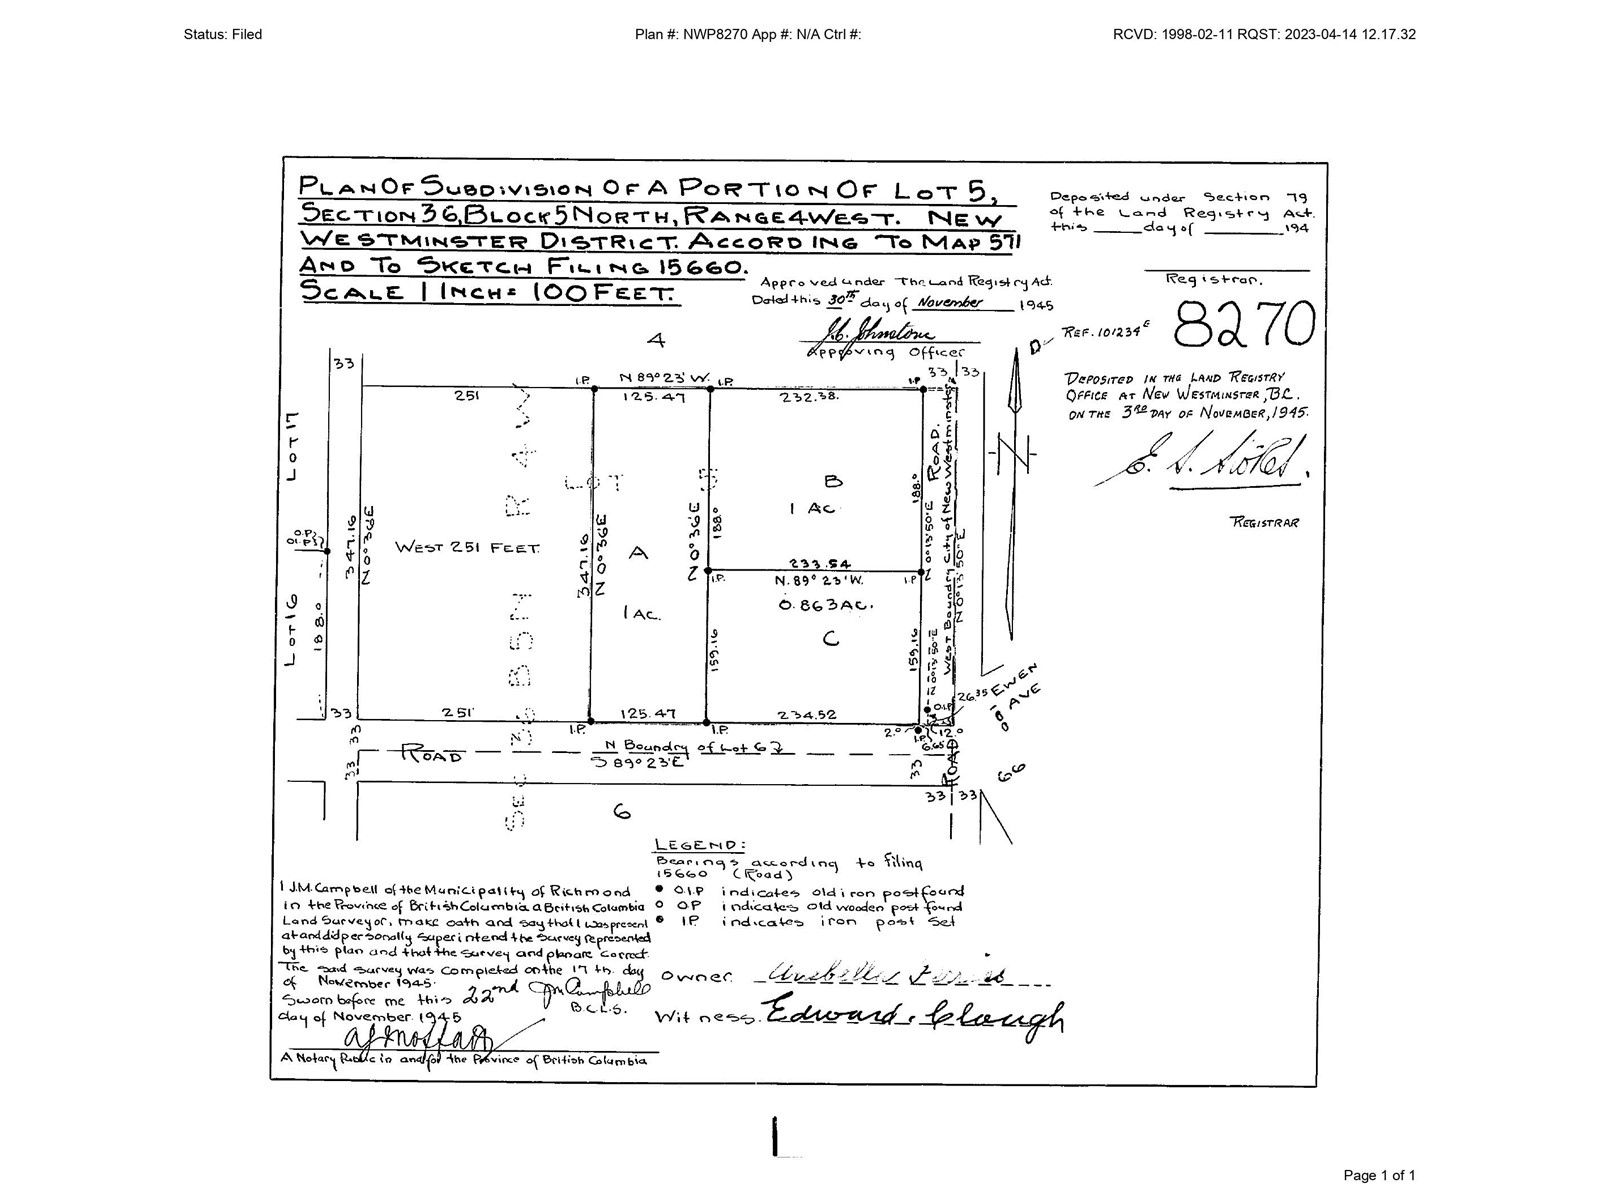 Status: Filed
Plan #: NWP8270 App #: N/A Ctrl #:
RCVD: 1998-02-11 RQST: 2023-04-14 12.17.32
PLAN OF SUBDIVISION OF A PORTION OF LOT 5,
SECTION 36, BLOCK 5 NORTH, RANGE 4 WEST. NEW
WESTMINSTER DISTRICT. ACCORDING TO MAP 571
AND TO SKETCH FILING 15660.
SCALE 1 INCH = 100 FEET.
Deposited under Section 79
of the Land Registry Act.
this ______ day of __________ 194
Registrar.
Approved under The Land Registry Act.
Dated this 30th day of November 1945
J.C. Johnstone
Approving Officer
REF. 101234E
8270
DEPOSITED IN THE LAND REGISTRY
OFFICE AT NEW WESTMINSTER, B.C.
ON THE 3RD DAY OF NOVEMBER, 1945.
E. S. Stokes.
REGISTRAR
D
N
4
33
I.P.
N 89° 23' W.
I.P.
I.P
33
33
251
125.47
232.38.
LOT 17
LOT 16
O.P.
188.0
347.16
N 0°36'E
WEST 251 FEET.
SEC 36 B5N R4W
LOT 5
347.16
N 0°36'E
A
1 AC.
N 0°36'E
188.0
B
1 AC.
188.0
N 0°13'50"E
ROAD.
West Boundary City of New Westminster
N 0°13'50"E
233.54
I.P.
N. 89° 23' W.
I.P
0.863 AC.
C
159.16
159.16
N 0°13'50"E
26.35
EWEN AVE
100
O.I.P
33
251
125.47
234.52
I.P.
I.P.
2.0
I.P.
12.0
6.65
33
33
ROAD
N Boundry of Lot 6
S 89° 23' E
33
ROAD
66
33
33
6
LEGEND:
Bearings according to filing
15660 (Road)
O.I.P indicates old iron post found
O.P indicates old wooden post found
I.P. indicates iron post set
I J.M. Campbell of the Municipality of Richmond
in the Province of British Columbia a British Columbia
Land Surveyor, make oath and say that I was present
at and did personally superintend the survey represented
by this plan and that the survey and plan are correct.
The said survey was completed on the 17th. day
of November 1945.
Sworn before me this 22nd
day of November. 1945
J M Campbell
B.C.L.S.
A Notary Public in and for the Province of British Columbia
Owner. Arabella Ferris
Witness. Edward. Clough
Page 1 of 1